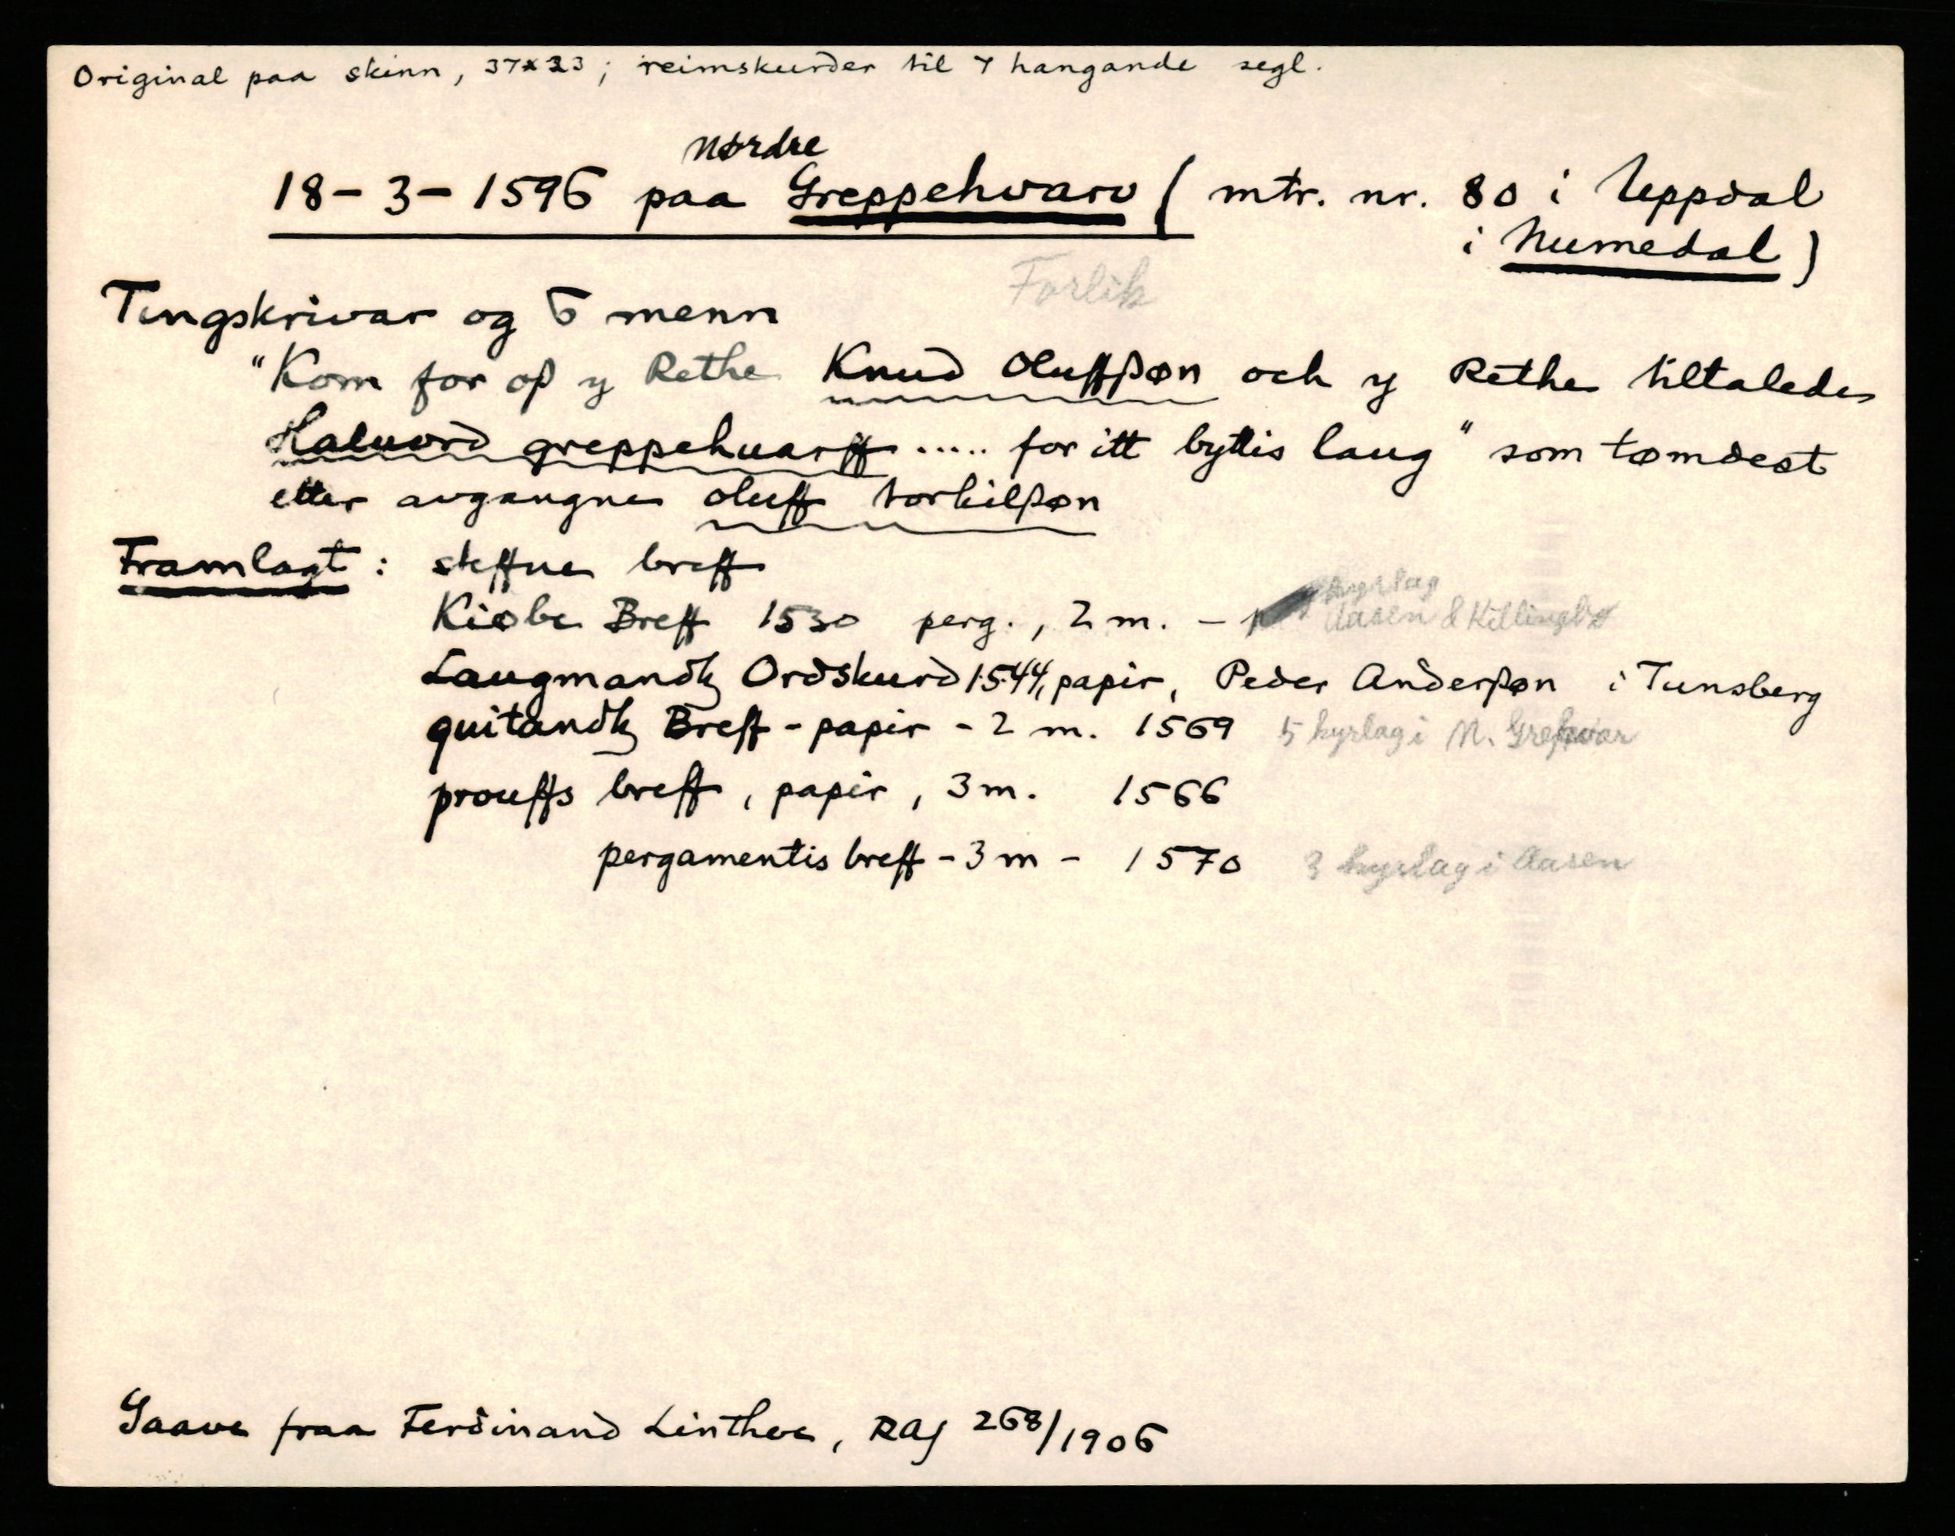 Original paa skinn, 37x23; reimskurder til 7 hangande segl.
Nordre
18-3-1596 paa Greppehvarv (mtr. nr. 80 i Uppdal
i Numedal)
Forlik
Tingskrivar og 6 menn
"Kom for oß y Rethe Knud Oluffßøn och y Rethe tiltalede
Haluord greppehuarff ..... for itt byttis laug" som tømdest
etter avgangne oluff torkilßøn
Framlagt: steffne breff
kyrlag
Kiøbe Breff 1530 perg., 2 m. - Aasen & Killingbø
Laugmandz Ordskurd 1544, papir, Peder Anderßøn i Tunsberg
quitandz Breff - papir - 2 m. 1569 5 kyrlag i N. Grephvar
prouffs breff, papir, 3 m. 1566
pergamentis breff - 3 m - 1570 3 kyrlag i Aasen
Gaave fraa Ferdinand Linthoe, RAJ 268/1906